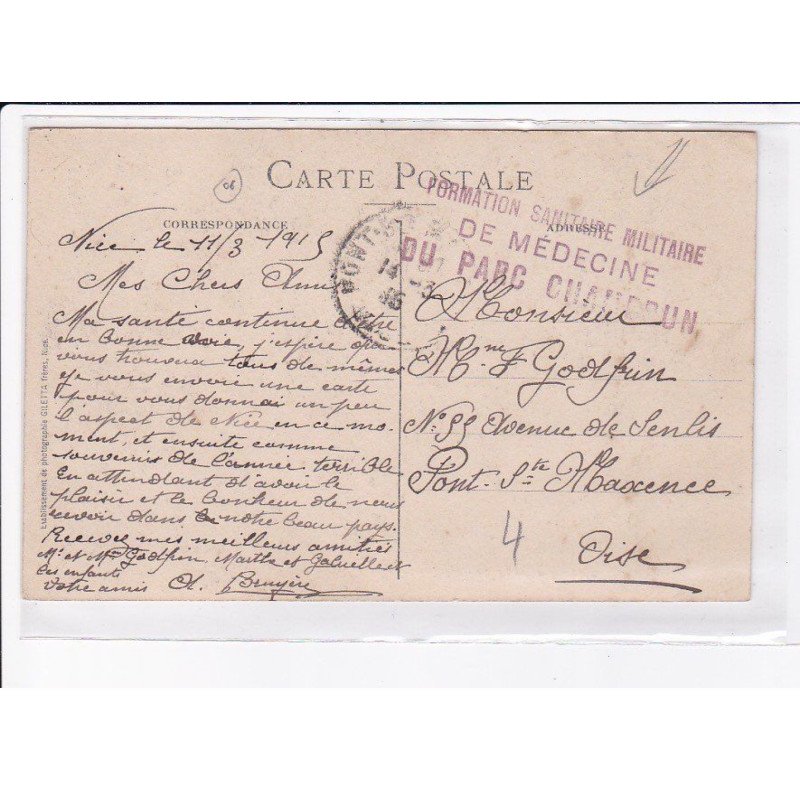 06
CARTE POSTALE
CORRESPONDANCE
ADRESSE
FORMATION SANITAIRE MILITAIRE
DE MÉDECINE
DU PARC CHAMBRUN
Nice le 11/3 1915
Mes Chers Amis
Ma santé continue être
en bonne voie, j'espère que
vous trouvera tous de même
je vous envoie une carte
pour vous donnai un peu
l'aspect de Nice en ce mo-
ment, et ensuite comme
souvenirs de l'année terrible
En attendant d'avoir le
plaisir et le bonheur de nous
revoir dans notre beau pays.
Recevez mes meilleurs amitiés
Mr et Mme Godfrin, Marthe et Gabrielle et
les enfants
Votre amis A. Bruyère
Monsieur
Mr F Godfrin
No 55 Avenue de Senlis
Pont-Ste Maxence
Oise
4
PONT-
14 -3
15
Etablissement de photographie GILETTA frères, Nice.